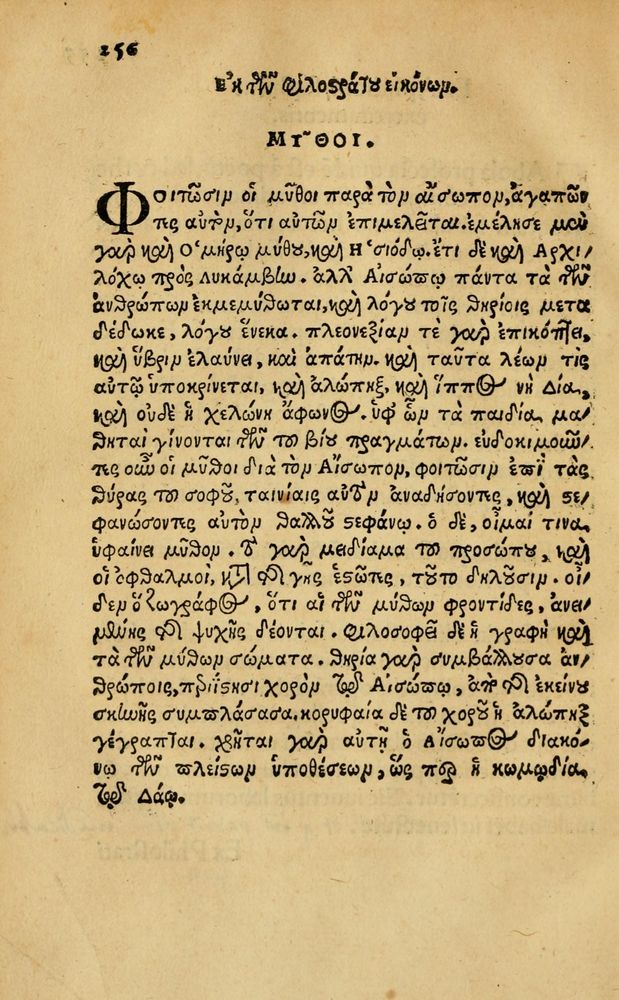 256
Ἐκ τῶν Φιλοστράτου εἰκόνων.
ΜΥ͂ΘΟΙ.
Φοιτῶσιν οἱ μῦθοι παρὰ τὸν αἴσωπον, ἀγαπῶν
τες αὐτὸν, ὅτι αὐτῶν ἐπιμελεῖται. ἐμέλησε μὲν
γὰρ καὶ Ὁμήρῳ μύθου, καὶ Ἡσιόδῳ. ἔτι δὲ καὶ Ἀρχι/
λόχῳ πρὸς Λυκάμβην. ἀλλ' Αἰσώπῳ πάντα τὰ τῶν
ἀνθρώπων ἐκμεμύθωται, καὶ λόγου τοῖς θηρίοις μετα
δέδωκε, λόγου ἕνεκα. πλεονεξίαν τὲ γὰρ ἐπικόπτει,
καὶ ὕβριν ἐλαύνει, καὶ ἀπάτην. καὶ ταῦτα λέων τὶς
αὐτῷ ὑποκρίνεται, καὶ ἀλώπηξ, καὶ ἵππος νὴ Δία,
καὶ οὐδὲ ἡ χελώνη ἄφωνος. ὑφ' ὧν τὰ παιδία μα/
θηταὶ γίνονται τῶν τοῦ βίου πραγμάτων. εὐδοκιμοῦν/
τες οὖν οἱ μῦθοι διὰ τὸν Αἴσωπον, φοιτῶσιν ἐπὶ τὰς
θύρας τοῦ σοφοῦ, ταινίαις αὐτὸν ἀναδήσοντες, καὶ στε/
φανώσοντες αὐτὸν θαλλοῦ στεφάνῳ. ὁ δὲ, οἶμαι τινα
ὑφαίνει μῦθον. τὸ γὰρ μειδίαμα τοῦ προσώπου, καὶ
οἱ ὀφθαλμοὶ, κατὰ τῆς γῆς ἑστῶτες, τοῦτο δηλοῦσιν. οἶ/
δεν ὁ ζωγράφος, ὅτι αἱ τῶν μύθων φροντίδες, ἀνει/
μένης τῆς ψυχῆς δέονται. Φιλοσοφεῖ δὲ ἡ γραφὴ καὶ
τὰ τῶν μύθων σώματα. θηρία γὰρ συμβάλλουσα ἀν/
θρώποις, περιΐστησι χορὸν τῷ Αἰσώπῳ, ἀπὸ τῆς ἐκείνου
σκηνῆς συμπλάσασα. κορυφαία δὲ τοῦ χοροῦ ἡ ἀλώπηξ
γέγραπται. χρῆται γὰρ αὐτῇ ὁ Αἴσωπος διακό/
νῳ τῶν πλείστων ὑποθέσεων, ὥς περ ἡ κωμῳδία
τῷ Δάῳ.